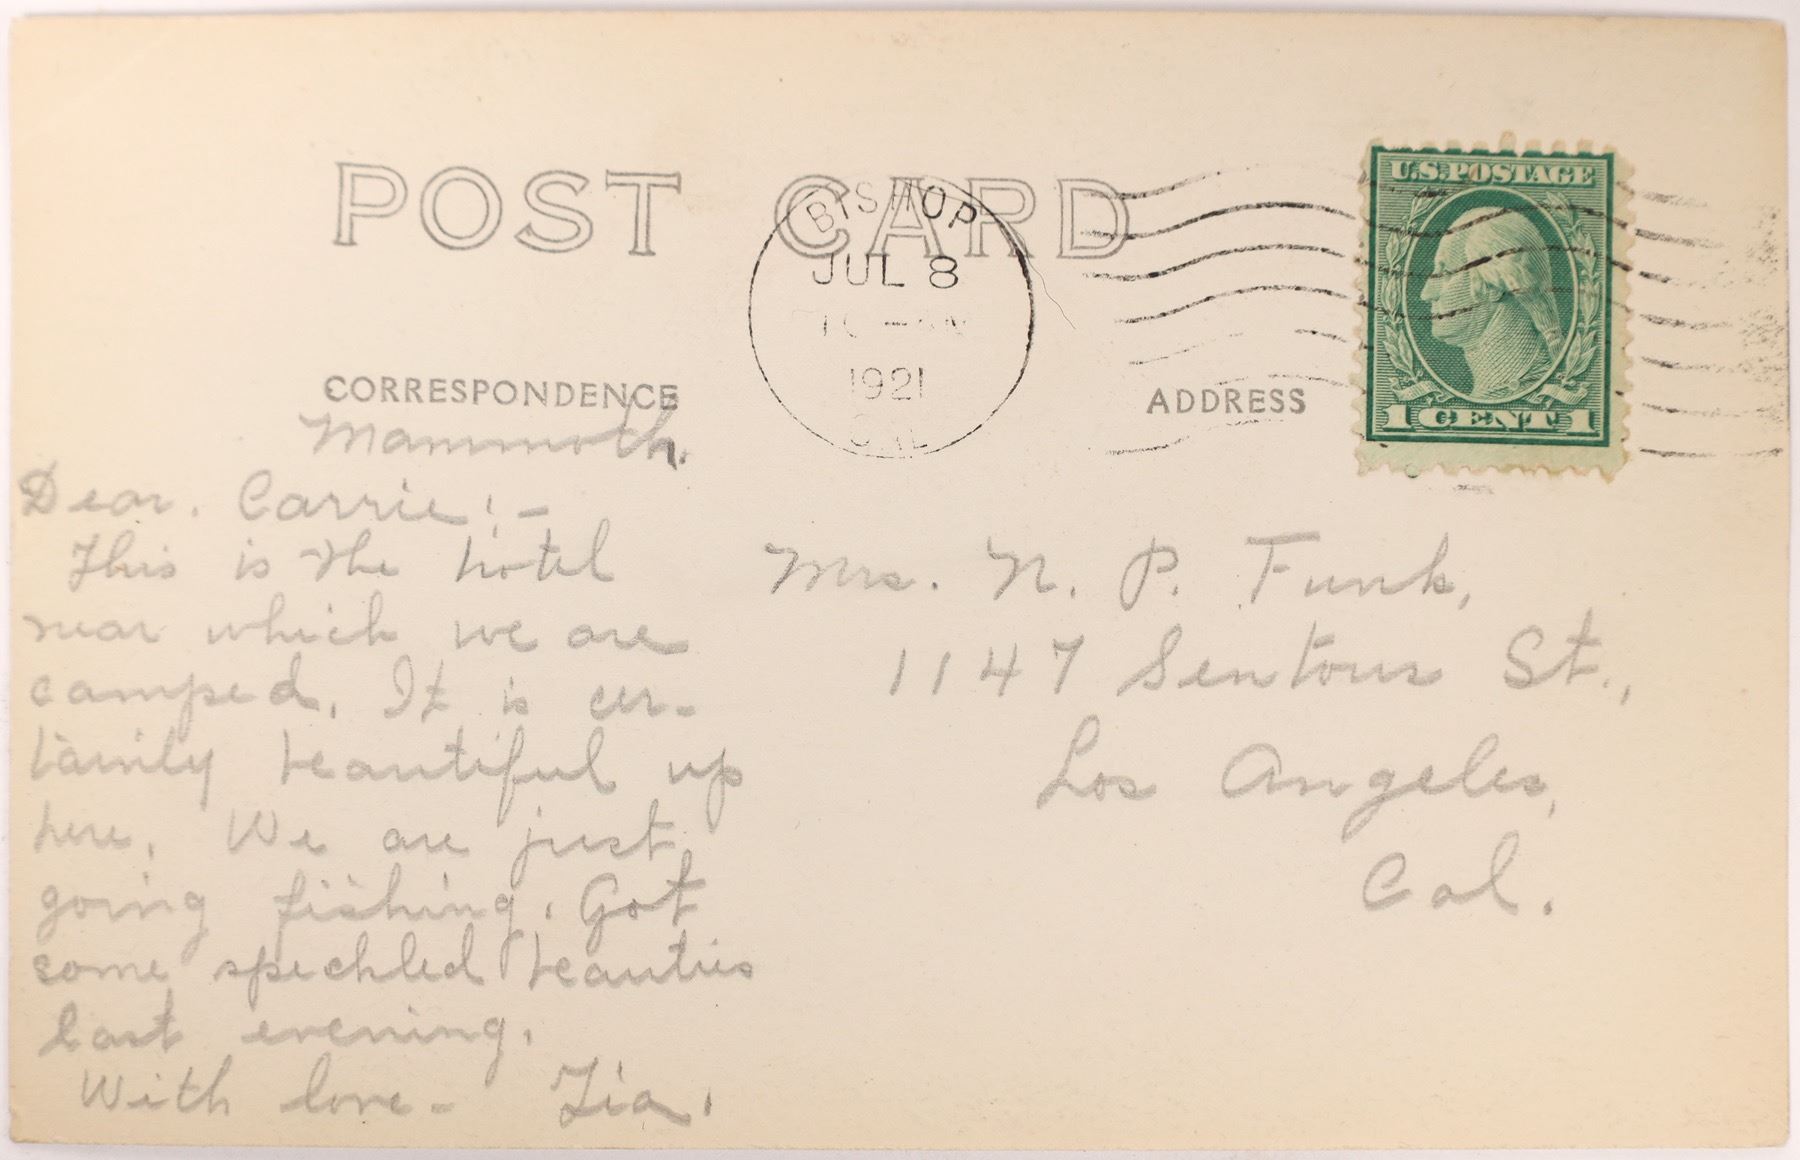 POST CARD
BISHOP
JUL 8
1921
CAL
U.S. POSTAGE
1 CENT 1
CORRESPONDENCE
ADDRESS
Mammoth.
Dear. Carrie:-
This is the hotel
near which we are
camped. It is cer-
tainly beautiful up
here. We are just
going fishing. Got
some speckled beauties
last evening.
With love-
Mrs. N. P. Funk,
1147 St.,
Los Angeles,
Cal.